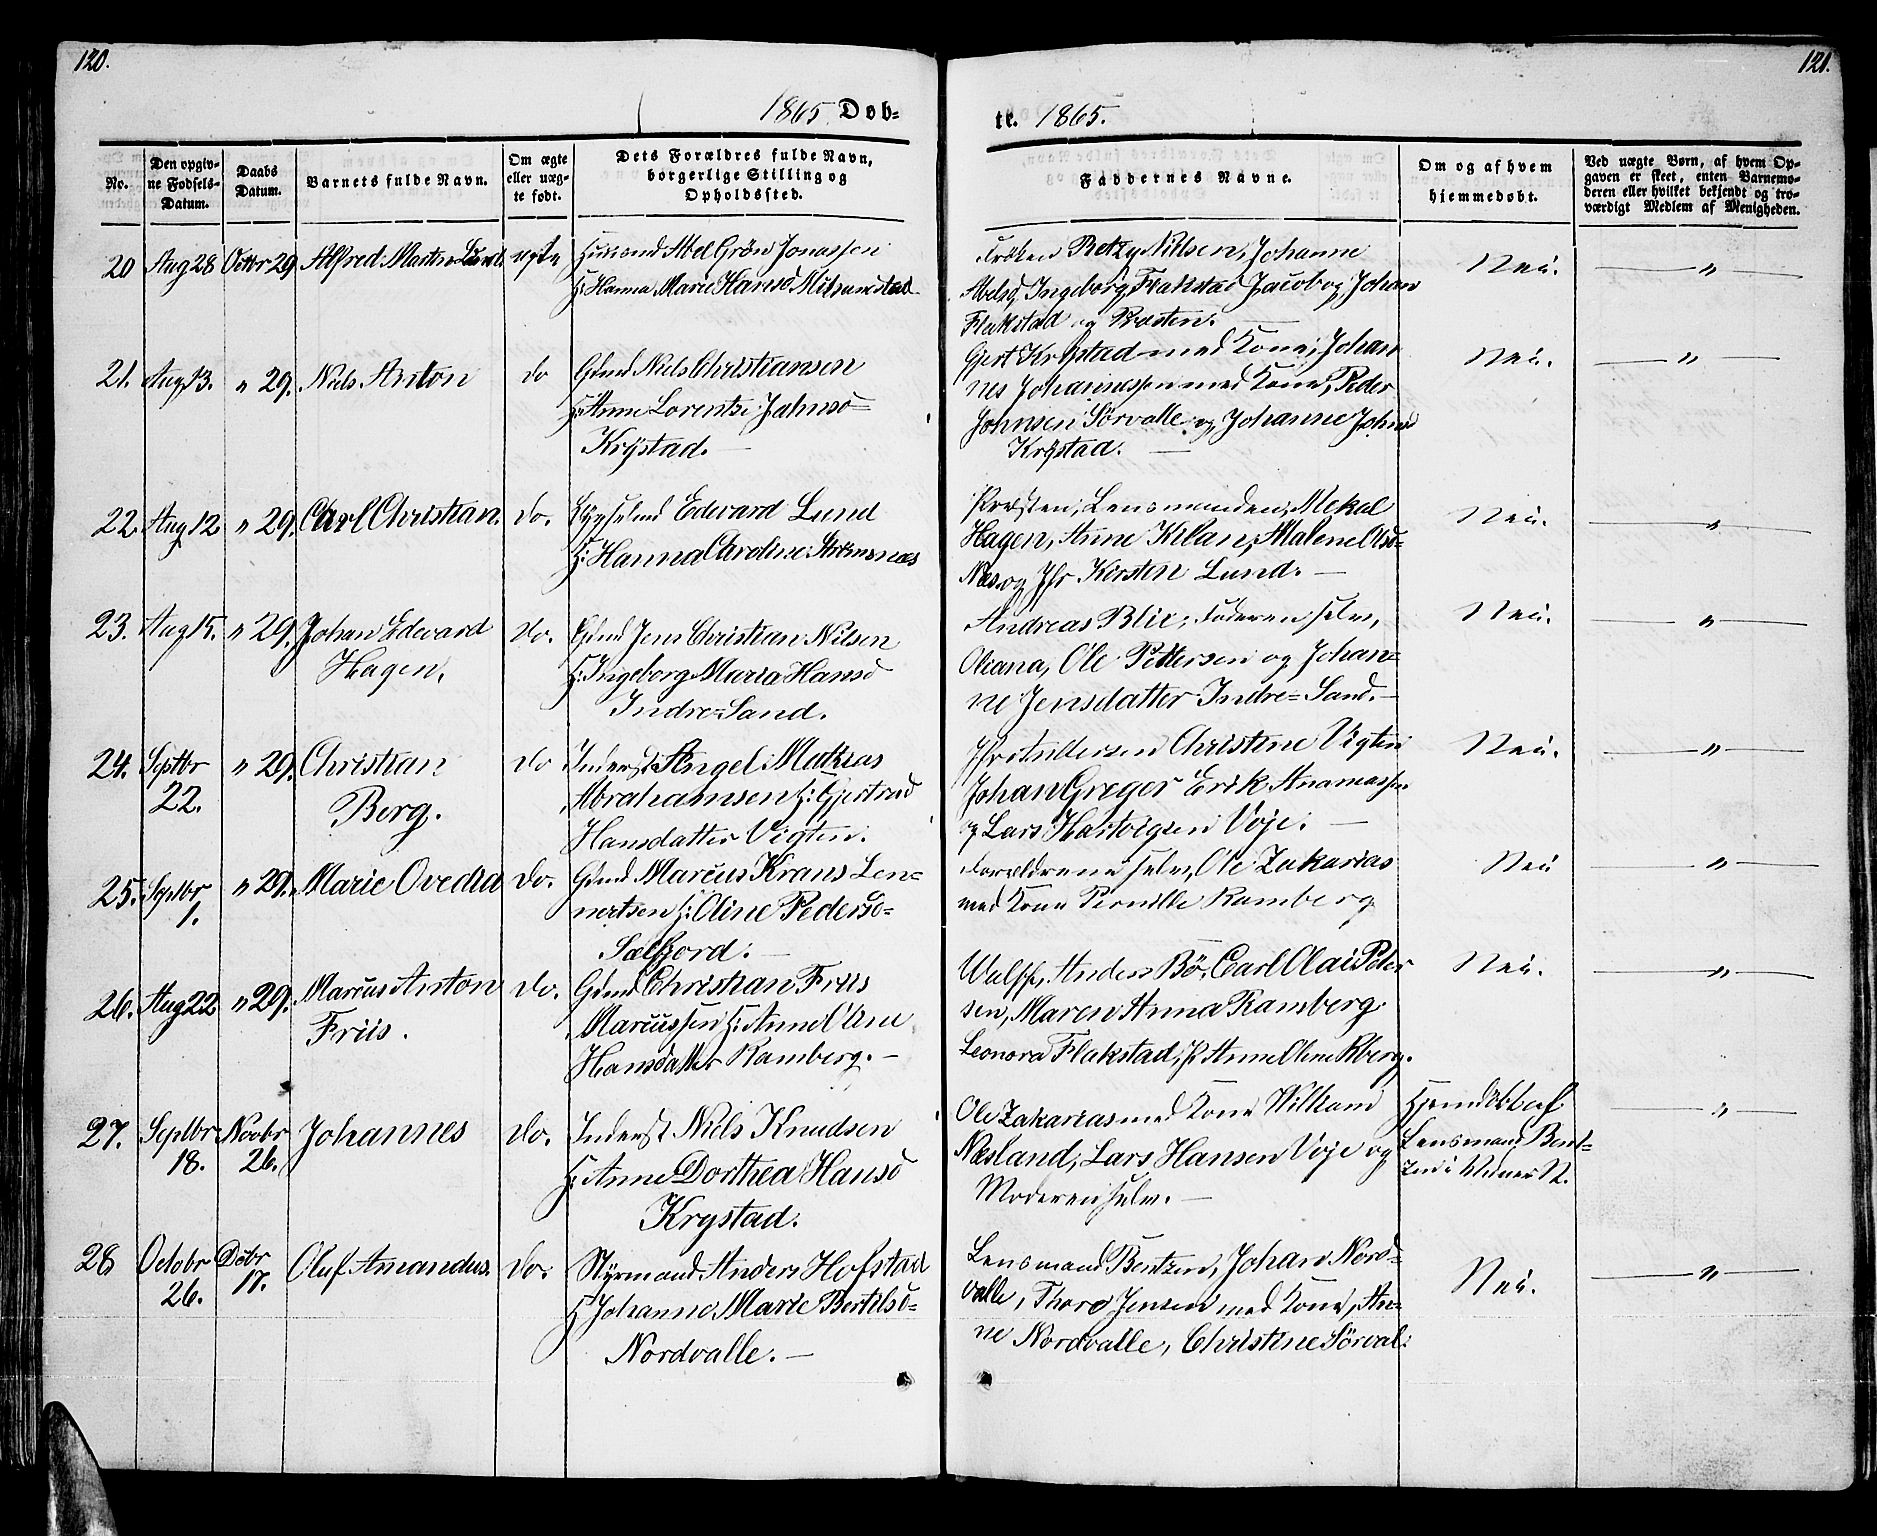 120.
121.
1865. Døb-
te. 1865.
No.
Den opgiv-
ne Fødsels-
Datum.
Daabs
Datum.
Barnets fulde Navn.
Om ægte
eller uæg-
te født.
Dets Forældres fulde Navn,
borgerlige Stilling og
Opholdssted.
Faddernes Navne.
Om og af hvem
hjemmedøbt.
Ved uægte Børn, af hvem Op-
gaven er skeet, enten Barnemo-
deren eller hvilket bekjendt og tro-
værdigt Medlem af Menigheden.
20 Aug 28 Octbr 29 Alfred Martin ægte
Husmand Abel Grön Jonassen
H: Hanna Marie Hansd
Fröken Betzy Nilsen, Johanne
Abelsd, Ingeborg Flakstad Jacob og Johan
Flakstad og Præsten.
Nei. "
21. Aug 13. " 29. Niels Anton do
Gdmd Niels Christiansen
H: Anne Lorentze Jahnsd-
Krystad.
Gjert Krystad med Kone, Johan
nes Johannessen med Kone, Peder
Johnsen Sørvalle og Johanne Johnsd
Krystad.
Nei. "
22. Aug 12 " 29. Carl Christian. do.
Edward Lund
H: Hanna Caroline Strömsnæs
Præsten, Lensmanden, Mekal
Hagen, Anne Kilan, Malene Olsd-
Næs og Jfr Kirsten Lund. -
Nei. "
23. Aug 15. " 29. Johan Edward do.
Hagen.
Gdmd Jens Christian Nilsen
H: Ingeborg Maria Hansd
Indre-Sand.
Andreas Blix, Faderen selv,
Oliana, Ole Pettersen og Johan-
ne Jensdatter Indre-Sand. -
Nei. "
24. Septbr 22. " 29. Christian do
Berg.
Inderst Angel Matias
Abrahamsen H: Gjertrud
Hansdatter Vigten.
Christine Vigten
Johan Greger Erik
og Lars Hartvigsen Voje. -
Nei. "
25. Septbr 1. " 29. Marie Ovedia do.
Gdmd Marcus Krans Len-
nertsen H: Oline Pedersd-
Sælfjord. -
Forældrene selv, Ole Zakarias
med Kone Pernille Ramberg
Nei "
26. Aug 22 " 29. Marcus Anton do.
Friis.
Gdmd Christian Friis
Marcussen H: Anne Oline
Hansdatter Ramberg. -
Anders Bö, Carl Olai Peter
sen, Maren Anna Ramberg
Leonora Flakstad, P. Anne Oline Rberg.
Nei. "
27. Septbr 18. Novbr 26. Johannes do.
Inderst Niels Knudsen
H: Anne Dorthea Hansd
Krystad.
Ole Zakarias med Kone William
Næsland, Lars Hansen Voje og
Moderen selv. -
Hjemdöbt af
Lensmand Bent-
"
28 Octobr 26. Dcbr 17. Oluf Amandus. do.
Styrmand Anders Hofstad
H Johanne Marie Bertilsd-
Nordvalle. -
Lensmand Bentzen, Johan Nord-
valle, Thore Jensen med Kone, An-
ne Nordvalle, Christine Sörval:
Nei. "